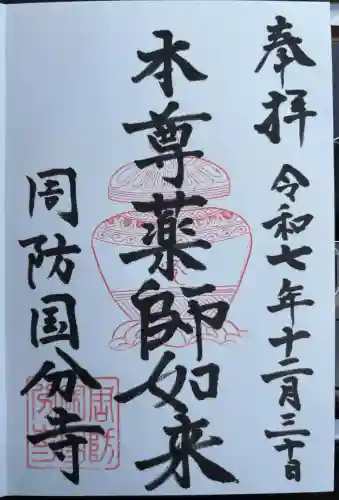 奉拝
令和七年十二月三十日
本尊薬師如来
周防国分寺
周防国分寺